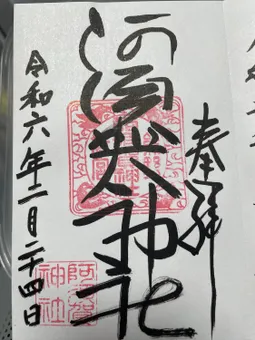 奉拝
阿須賀神社
令和六年二月二十四日
阿須賀
神社